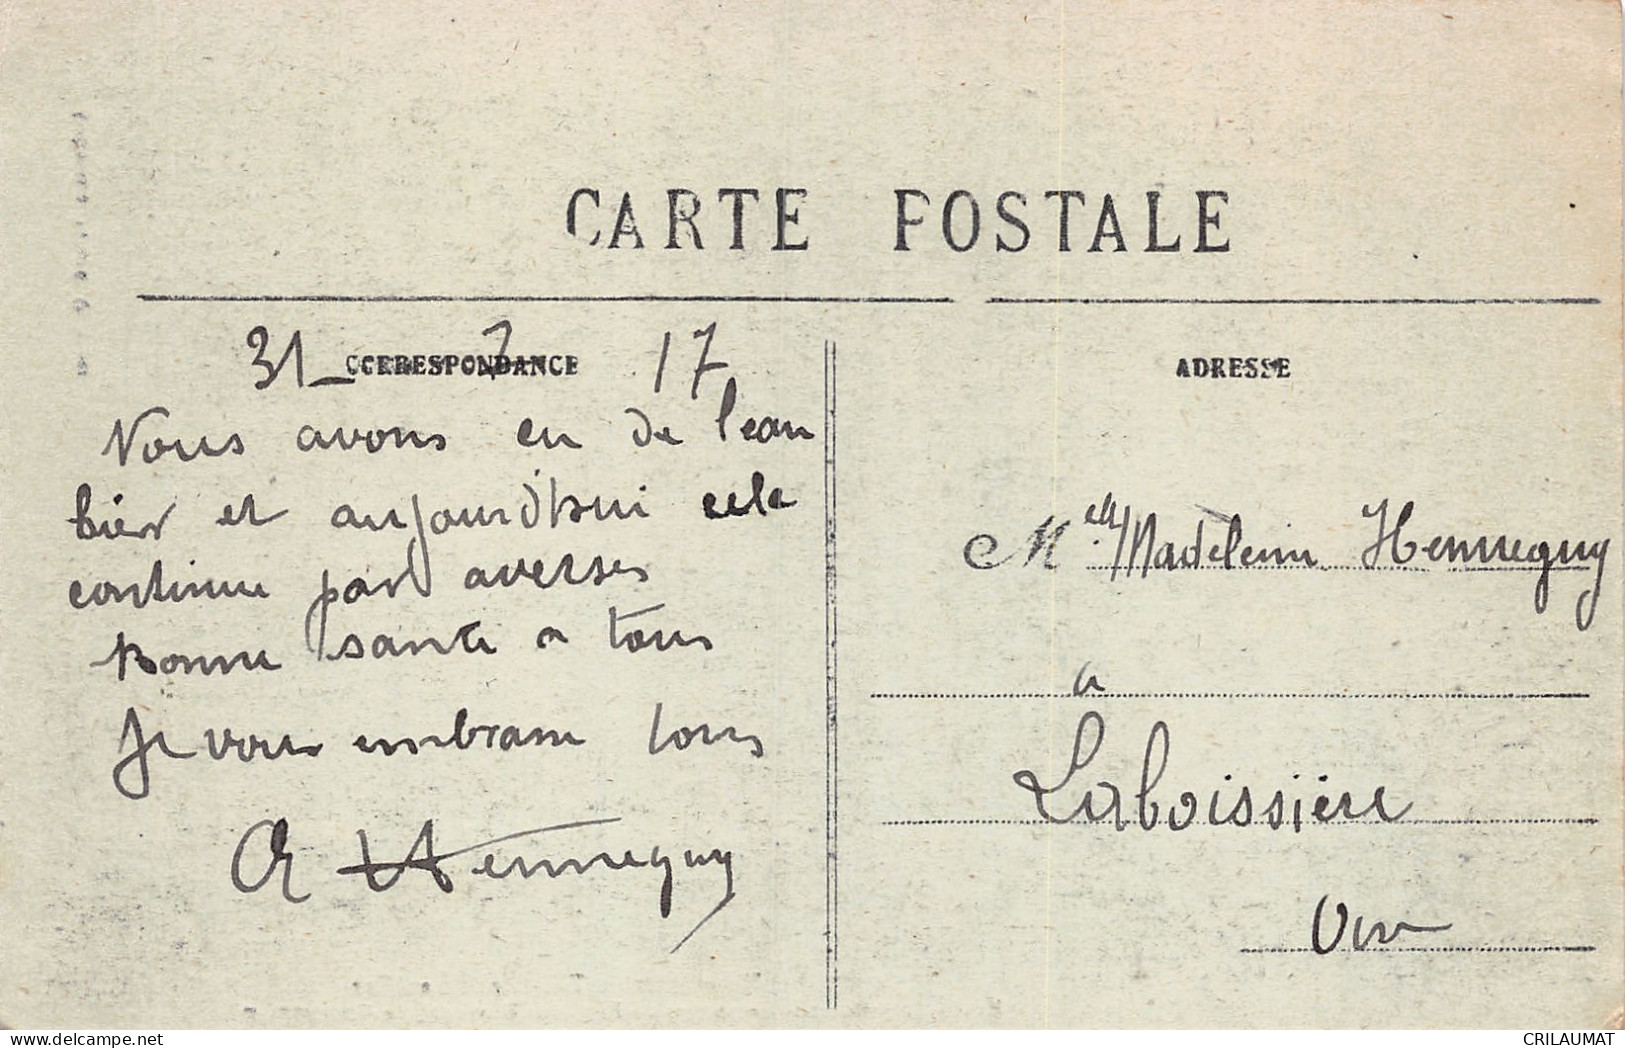 CARTE POSTALE
31_ 7 17
CORRESPONDANCE
Nous avons eu de l'eau
hier et aujourd'hui cela
continue par averses
Bonne santé a tous
Je vous embrasse tous
A Henneguy
ADRESSE
Melle Madeleine Henneguy
a
Laboissière
Oise
CRILAUMAT